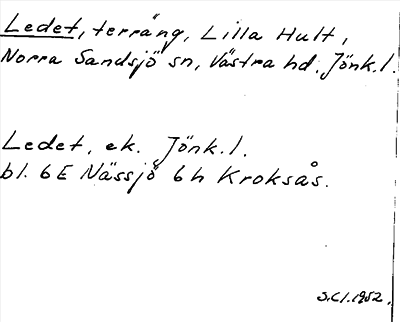 Ledet, terräng, Lilla Hult,
Norra Sandsjö sn, Västra hd. Jönk.l.
Ledet, ek. Jönk.l.
bl. 6E Nässjö 6h Kroksås.
S.Cl.1952.